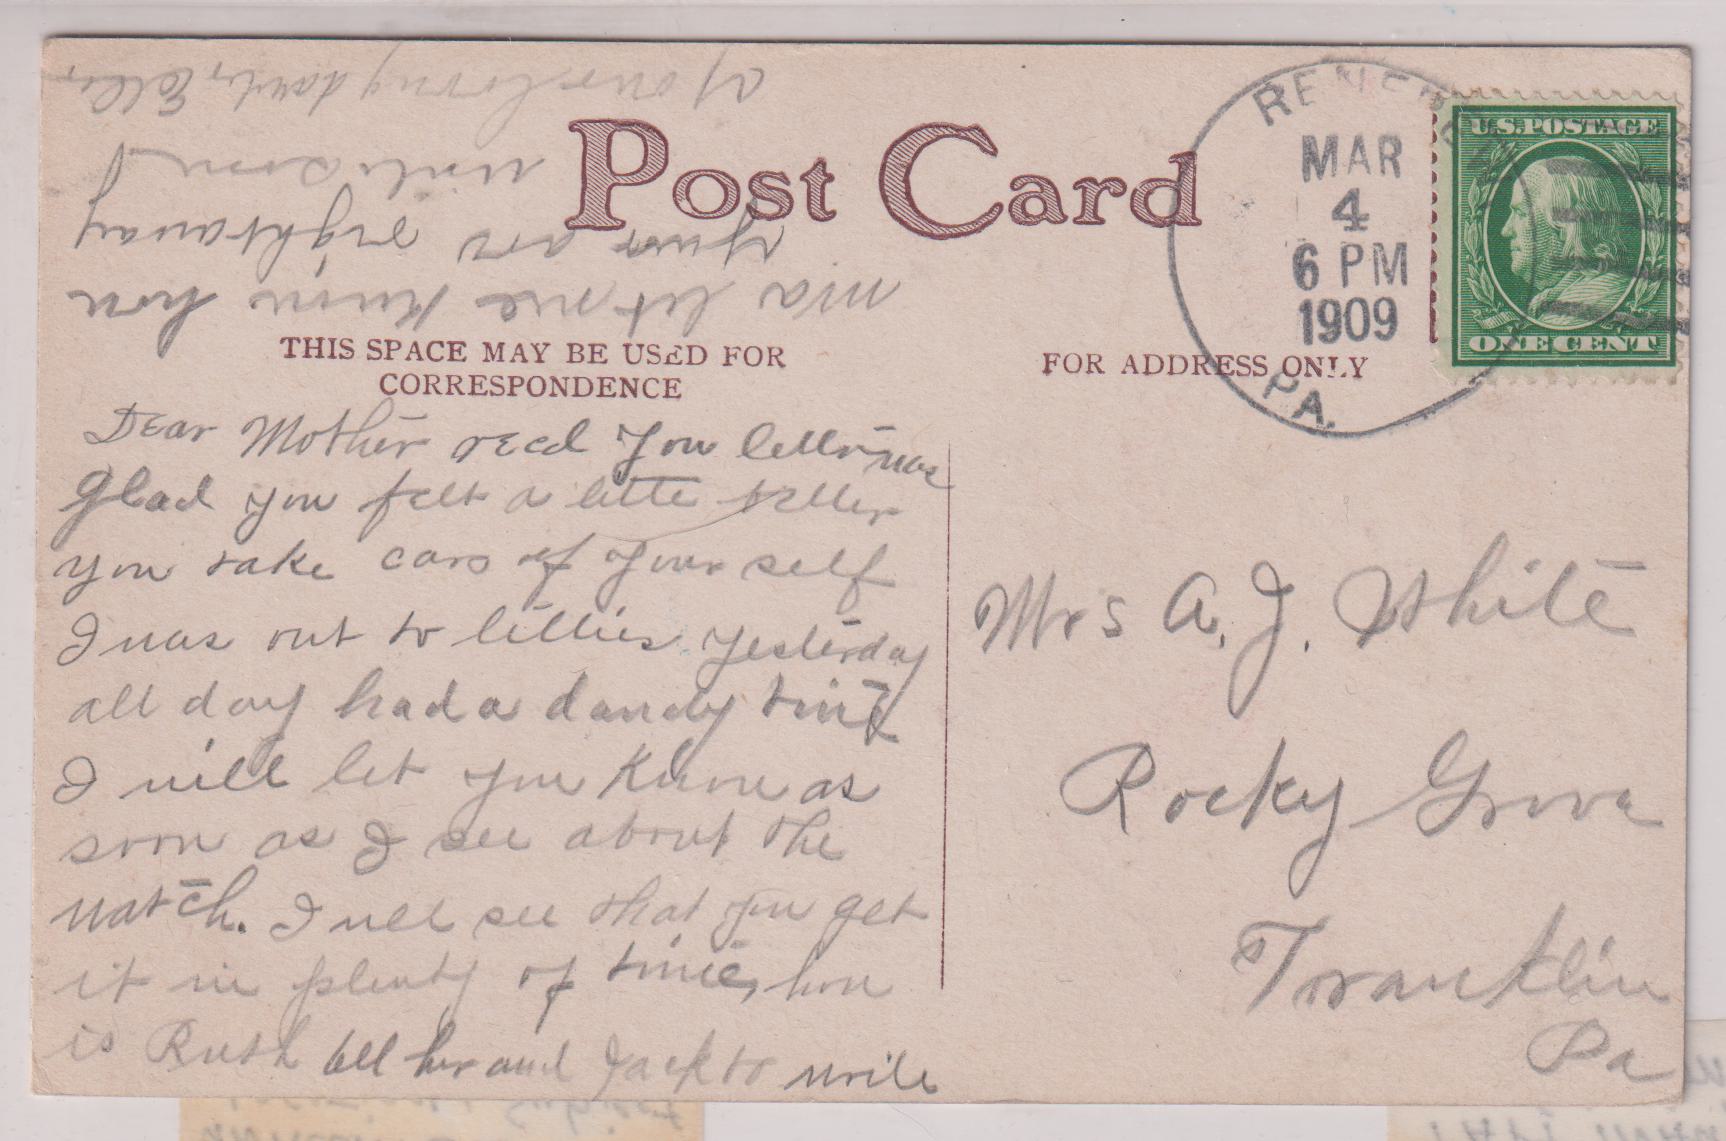 Post Card
THIS SPACE MAY BE USED FOR
CORRESPONDENCE
FOR ADDRESS ONLY
MAR
4
6 PM
1909
PA.
U.S. POSTAGE
ONE CENT
Dear Mother recd you letter was
glad you felt a little better
you take care of your self
I was out to Lillies yesterday
all day had a dandy time
I will let you know as
soon as I see about the
watch. I will see that you get
it in plenty of time, how
is Ruth tell her and Jack to write
ma let me know how
your are right away
write soon
Your loving daut, Ella
Mrs A. J. White
Rocky Grove
Franklin
Pa